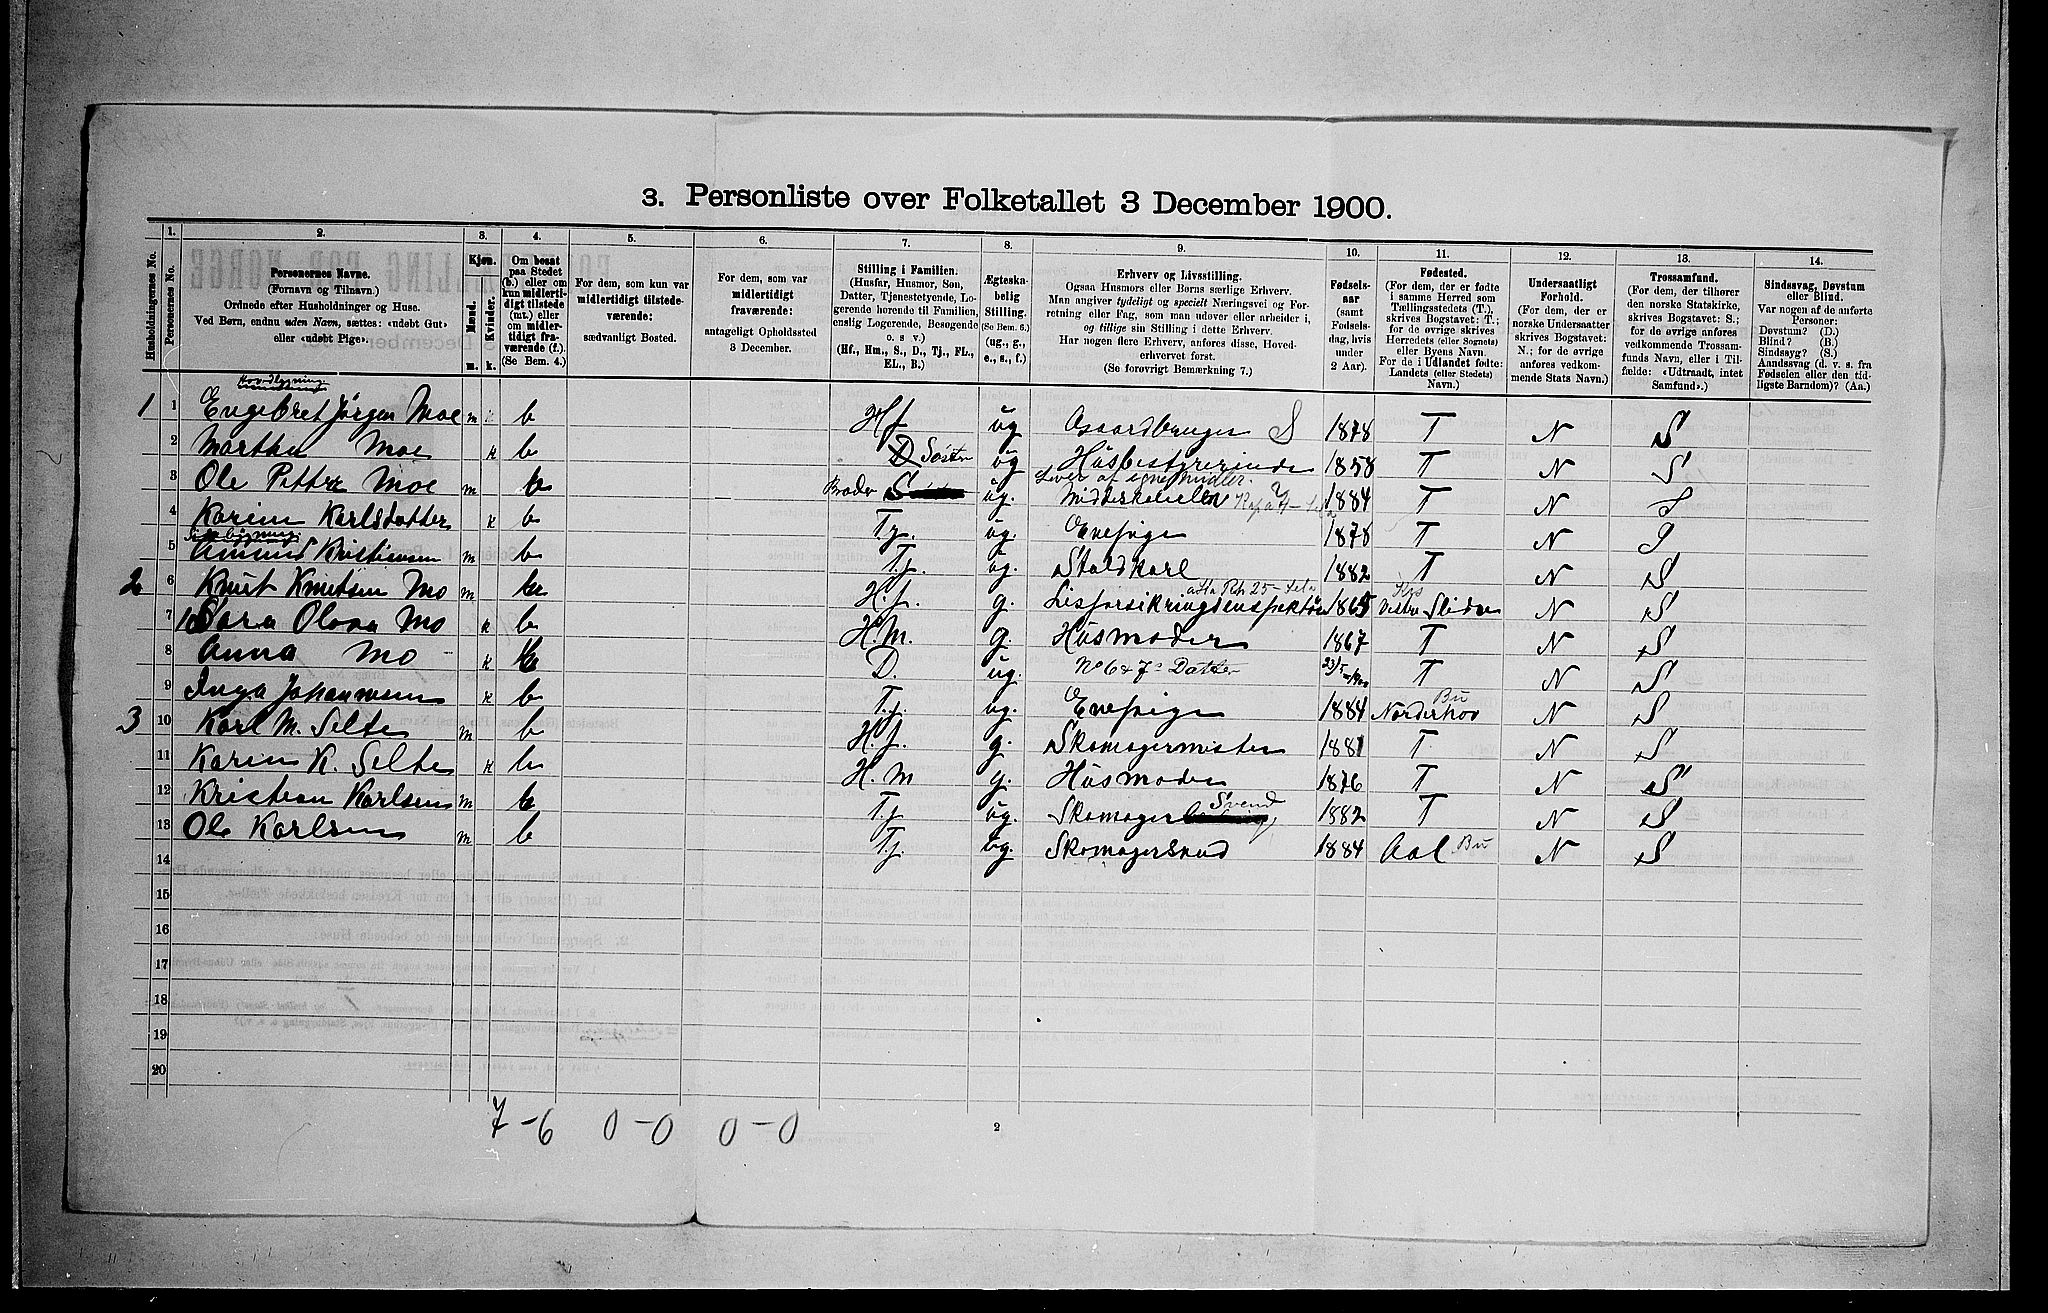 3. Personliste over Folketallet 3 December 1900.
Husholdningernes No.
1. Personernes No.
2. Personernes Navne.
(Fornavn og Tilnavn.)
Ordnede efter Husholdninger og Huse.
Ved Børn, endnu uden Navn, sættes: «udøbt Gut»
eller «udøbt Pige».
3. Kjøn.
Mænd. Kvinder.
m. k.
4. Om bosat
paa Stedet
(b.) eller om
kun midlerti-
digt tilstede
(mt.) eller
om midler-
tidigt fra-
værende (f.).
(Se Bem. 4.)
5. For dem, som kun var
midlertidigt tilstede-
værende:
sædvanligt Bosted.
6. For dem, som var
midlertidigt
fraværende:
antageligt Opholdssted
3 December.
7. Stilling i Familien.
(Husfar, Husmor, Søn,
Datter, Tjenestetyende, Lo-
gerende hørende til Familien,
enslig Logerende, Besøgende
o. s v.)
(Hf., Hm., S., D., Tj., FL.,
EL., B.)
8. Ægteska-
belig
Stilling.
(Se Bem. 6.)
(ug., g.,
e., s., f.)
9. Erhverv og Livsstilling.
Ogsaa Husmors eller Børns særlige Erhverv.
Man angiver tydeligt og specielt Næringsvei og For-
retning eller Fag, som man udøver eller arbeider i,
og tillige sin Stilling i dette Erhverv.
Har nogen flere Erhverv, anføres disse, Hoved-
erhvervet først.
(Se forøvrigt Bemærkning 7.)
10. Fødsels-
aar
(samt
Fødsels-
dag, hvis
under
2 Aar).
11. Fødested.
(For dem, der er fødte
i samme Herred som
Tællingsstedets (T.),
skrives Bogstavet: T.;
for de øvrige skrives
Herredets (eller Sognets)
eller Byens Navn.
For de i Udlandet fødte:
Landets (eller Stedets)
Navn.)
12. Undersaatligt
Forhold.
(For dem, der er
norske Undersaatter
skrives Bogstavet:
N.; for de øvrige
anføres vedkom-
mende Stats Navn.)
13. Trossamfund.
(For dem, der tilhører
den norske Statskirke,
skrives Bogstavet: S.;
for de øvrige anføres
vedkommende Trossam-
funds Navn, eller i Til-
fælde: «Udtraadt, intet
Samfund».)
14. Sindssvag, Døvstum
eller Blind.
Var nogen af de anførte
Personer:
Døvstum? (D.)
Blind? (B.)
Sindssyg? (S.)
Aandssvag (d. v. s. fra
Fødselen eller den tid-
ligste Barndom)? (Aa.)
Hovedbygning
1 1 Engebret Jørgen Moe m b Hf ug Gaardbruger S 1878 T N S
2 Marthe Moe k b D Søster ug Husbestyrerinde 1858 T N S
Lever af egne midler.
3 Ole Petter Moe m b Broder S ug. Middelskoleelev 1884 T N S
4 Karine Karlsdatter k b Tj. ug. Enepige 1878 T N S
5 Amund Kristiansen m b Tj. ug. Staldkarl 1882 T N S
2 6 Knut Knutsen Mo m b H.f. g. Livforsikringsinspektør 1865 Vestre Slidre N S
7 Sara Olava Mo k b H.M. g. Husmoder 1867 T N S
8 Anna Mo k b D. ug. No 6 & 7s Datter 23/5 1900 T N S
9 Inga Johannesen k b Tj. ug. Enepige 1884 Norderhov Bu N S
3 10 Karl M. Selte m b H.f. g. Skomagermester 1881 T. N S
11 Karen K. Selte k b H.M g. Husmoder 1876 T N S
12 Kristian Karlsen m b Tj ug. Skomager Svend 1882 T N S
13 Ole Karlsen m b Tj. ug. Skomagersvend 1884 Aal Bu N S
14
15
16
17
18
19
20
7-6 0-0 0-0
2